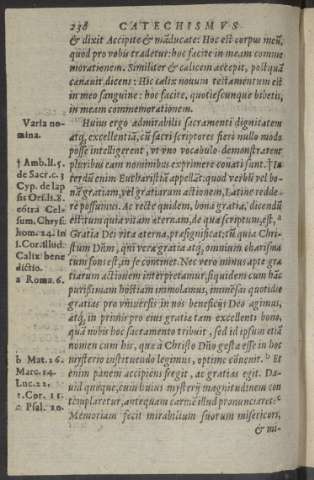 238 CATECHISMVS
& dixit Accipite & mãducate: Hoc est corpus meũ,
quod pro vobis tradetur: hoc facite in meam comme
morationem. Similiter & calicem accepit, postquã
cœnauit dicens: Hic calix nouum testamentum est
in meo sanguine: hoc facite, quotiescunque bibetis,
in meam commemorationem.
Varia no-
mina.
Huius ergo admirabilis sacramenti dignitatem
atq; excellentiã, cũ sacri scriptores fieri nullo modo
posse intelligerent, vt vno vocabulo demonstraretur
pluribus eam nominibus exprimere conati sunt. † In
terdũ enim Eucharistiã appellãt. quod verbũ vel bo-
nã gratiam, vel gratiarum actionem, Latine redde-
re possumus. Ac recte quidem, bona gratia, dicendũ
est: tum quia vitam æternam, de qua scriptum, est, a
Gratia Dei vita æterna, præsignificat: tũ quia Chri-
stum Dñm, qui vera gratia atq; omnium charisma
tum fons est, in se continet. Nec vero minus apte gra
tiarum actionem interpretamur. siquidem cum hãc
purissimam hostiam immolamus, immẽsas quotidie
gratias pro vniuersis in nos beneficijs Deo agimus,
atq; in primis pro eius gratiæ tam excellenti bono,
quã nobis hoc sacramento tribuit, sed id ipsum etiã
nomen cum his, quæ à Christo Dño gesta esse in hoc
mysterio instituendo legimus, optime cõuenit. b Et
enim panem accipiens fregit, ac gratias egit. Da-
uid quoque, cum huius mysterij magnitudinem con
templaretur, antequam carmẽ illud pronunciaret: c
Memoriam fecit mirabilium suorum misericors,
& mi-
† Amb. li. 5.
de Sacr. c. 3
Cyp. de lap
sis Ori. lt. 8.
cõtra Cel-
sum. Chrys.
hom. 24. in
1. Cor. illud:
Calix bene
dictio.
a Roma. 6.
b Mat. 26.
Marc. 14.
Luc. 22.
1. Cor. 11.
c Psal. 10.